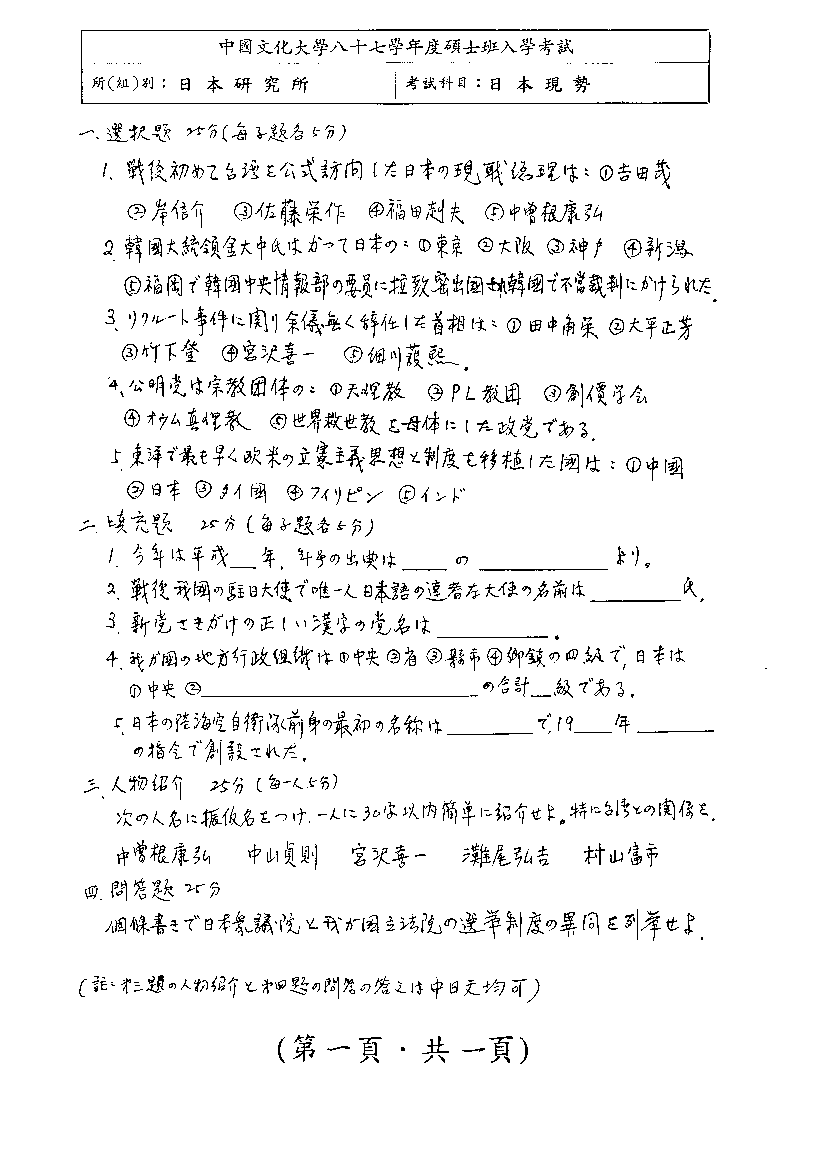 中國文化大學八十七學年度碩士班入學考試
所(組)別：日本研究所 考試科目：日本現勢
一、選択題 25分(每子題各5分)
1、戦後初めて台湾を公式訪問した日本の現職総理は：①吉田茂
②岸信介 ③佐藤栄作 ④福田赳夫 ⑤中曽根康弘
2、韓國大統領金大中氏はかつて日本の：①東京 ②大阪 ③神戸 ④新潟
⑤福岡で韓國中央情報部の要員に拉致密出國され韓國で不當裁判にかけられた。
3、リクルート事件に関り余儀無く辞任した首相は：①田中角栄 ②大平正芳
③竹下登 ④宮沢喜一 ⑤細川護熙。
4、公明党は宗教团体の：①天理教 ②PL教団 ③創價学会
④オウム真理教 ⑤世界救世教を母体にした政党である。
5、東洋で最も早く欧米の立憲主義思想と制度を移植した國は：①中國
②日本 ③タイ國 ④フィリピン ⑤インド
二、填充題 25分(每子題各5分)
1、今年は平成__年、年号の出典は____の___________より。
2、戦後我國の駐日大使で唯一人日本語の達者な大使の名前は________氏。
3、新党さきがけの正しい漢字の党名は__________。
4、我が國の地方行政組織は①中央②省③縣市④鄉鎮の四級で、日本は
①中央②________________________の合計__級である。
5、日本の陸海空自衛隊前身の最初の名称は________で、19___年_______
の指令で創設された。
三、人物紹介 25分(每一人5分)
次の人名に振仮名をつけ、一人に30字以内簡単に紹介せよ。特に台湾との関係を。
中曽根康弘 中山貞則 宮沢喜一 灘尾弘吉 村山富市
四、問答題 25分
個條書きで日本衆議院と我が国立法院の選挙制度の異同を列挙せよ。
(註：第三題の人物紹介と第四題の問答の答えは中日文均可)
(第一頁·共一頁)